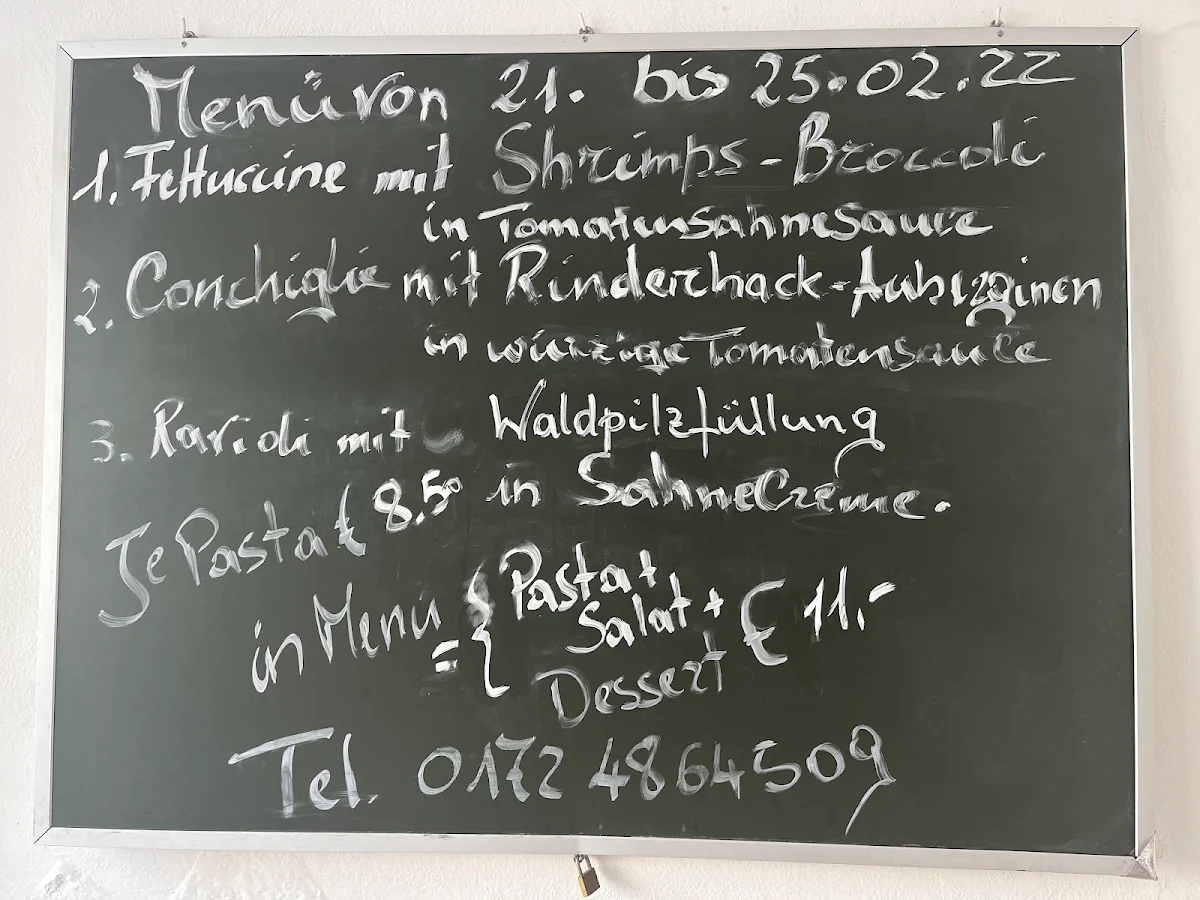 Menü von 21. bis 25.02.22
1. Fettuccine mit Shrimps-Broccoli
in Tomatensahnesauce
2. Conchiglie mit Rinderhack-Auberginen
in würzige Tomatensauce
3. Ravioli mit Waldpilzfüllung
in SahneCreme.
Je Pasta € 8.50
in Menü = { Pasta +
Salat +
Dessert € 11.-
Tel. 0172 4864509